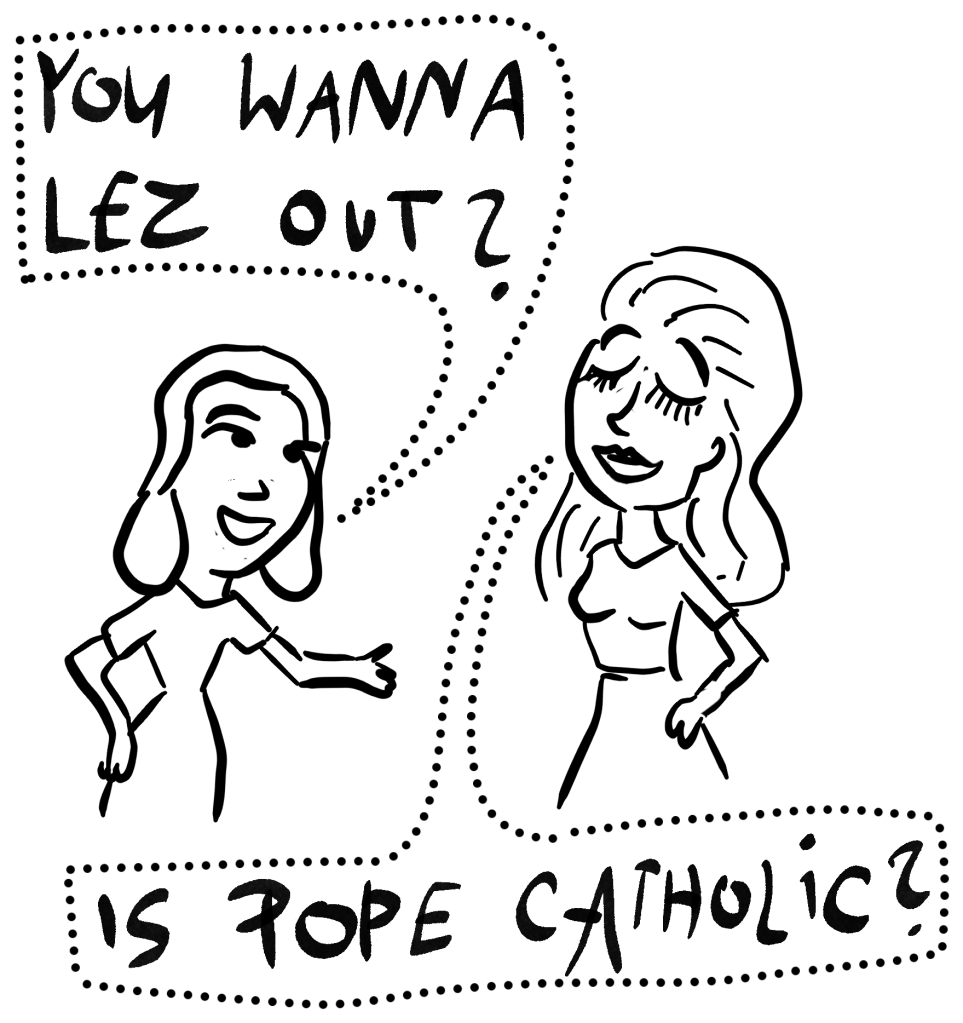 YOU WANNA
LEZ OUT?
IS POPE CATHOLiC?